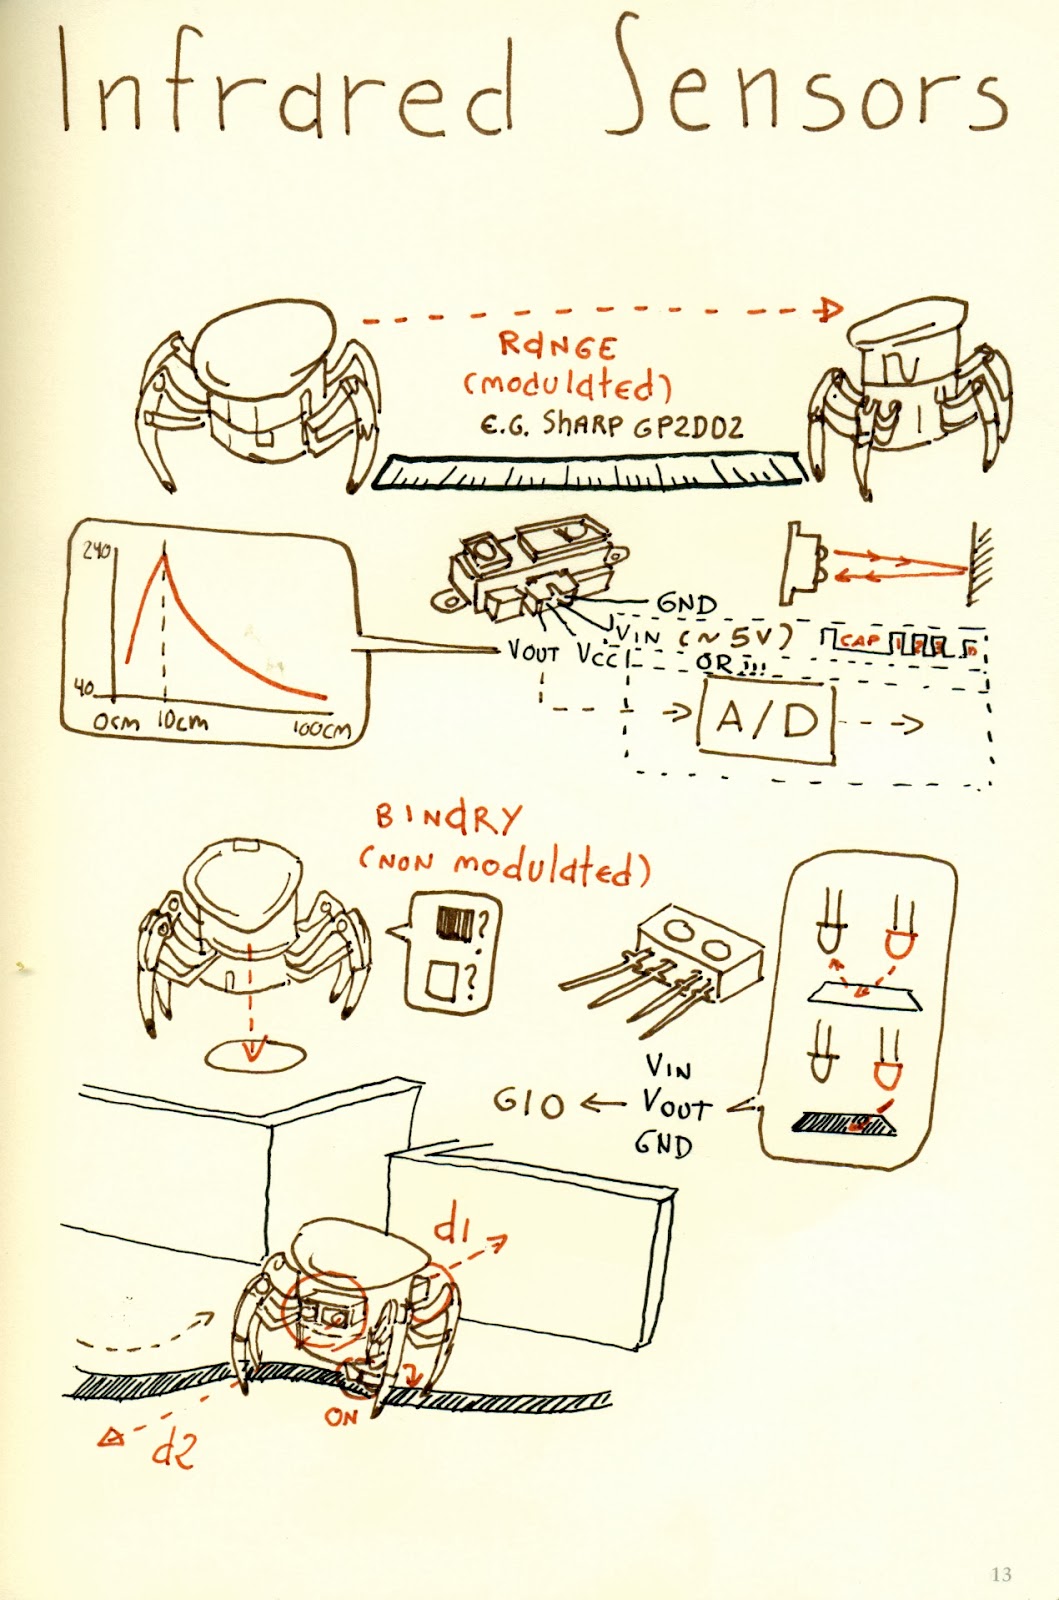 Infrared Sensors
RANGE
(modulated)
E.G. SHARP GP2D02
240
40
0cm 10cm 100cm
GND
VIN (~5V) CAP 1 2 3
VOUT VCC
OR!!!
A/D
BINARY
(NON modulated)
?
?
VIN
GIO ← VOUT
GND
d1
ON
d2
13